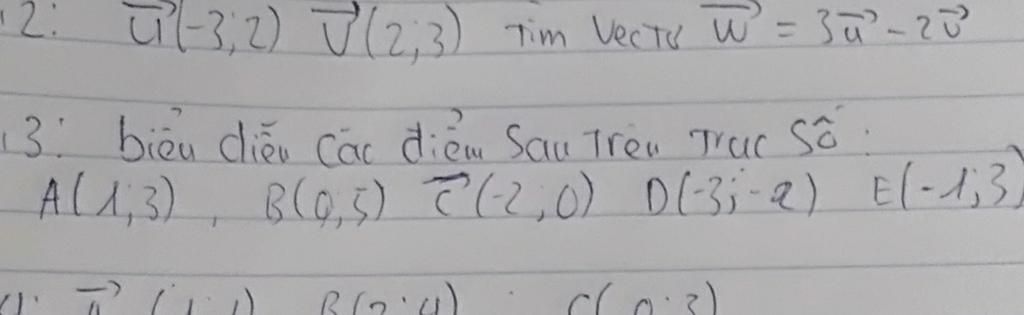 2: u⃗(-3;2) v⃗(2;3) Tìm Vectơ w⃗ = 3u⃗ - 2v⃗
3: biểu diễn các điểm Sau Trên Trục Số:
A(1;3), B(0;5) c⃗(-2;0) D(-3;-2) E(-1;3)